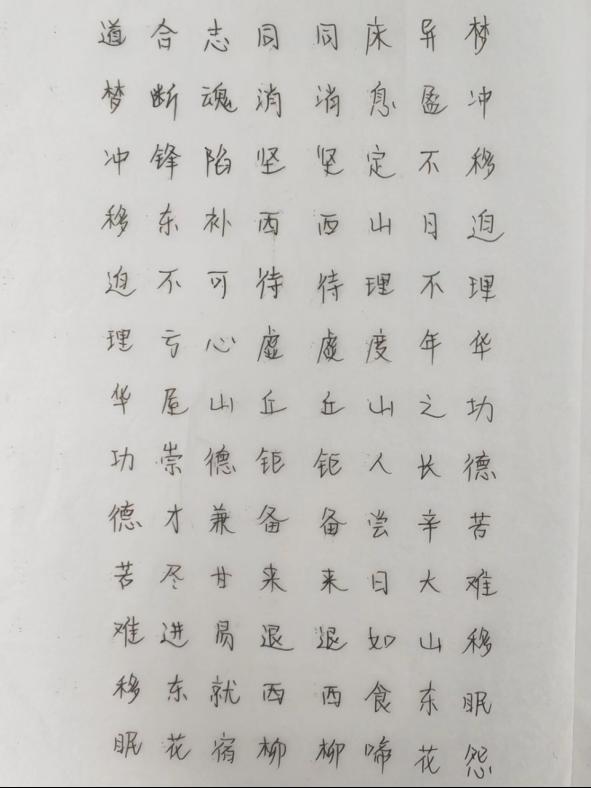 道合志同同床异梦
梦断魂消消息盈冲
冲锋陷坚坚定不移
移东补西西山日迫
迫不可待待理不理
理亏心虚虚度年华
华屋山丘丘山之功
功崇德钜钜人长德
德才兼备备尝辛苦
苦尽甘来来日大难
难进易退退如山移
移东就西西食东眠
眠花宿柳柳啼花怨